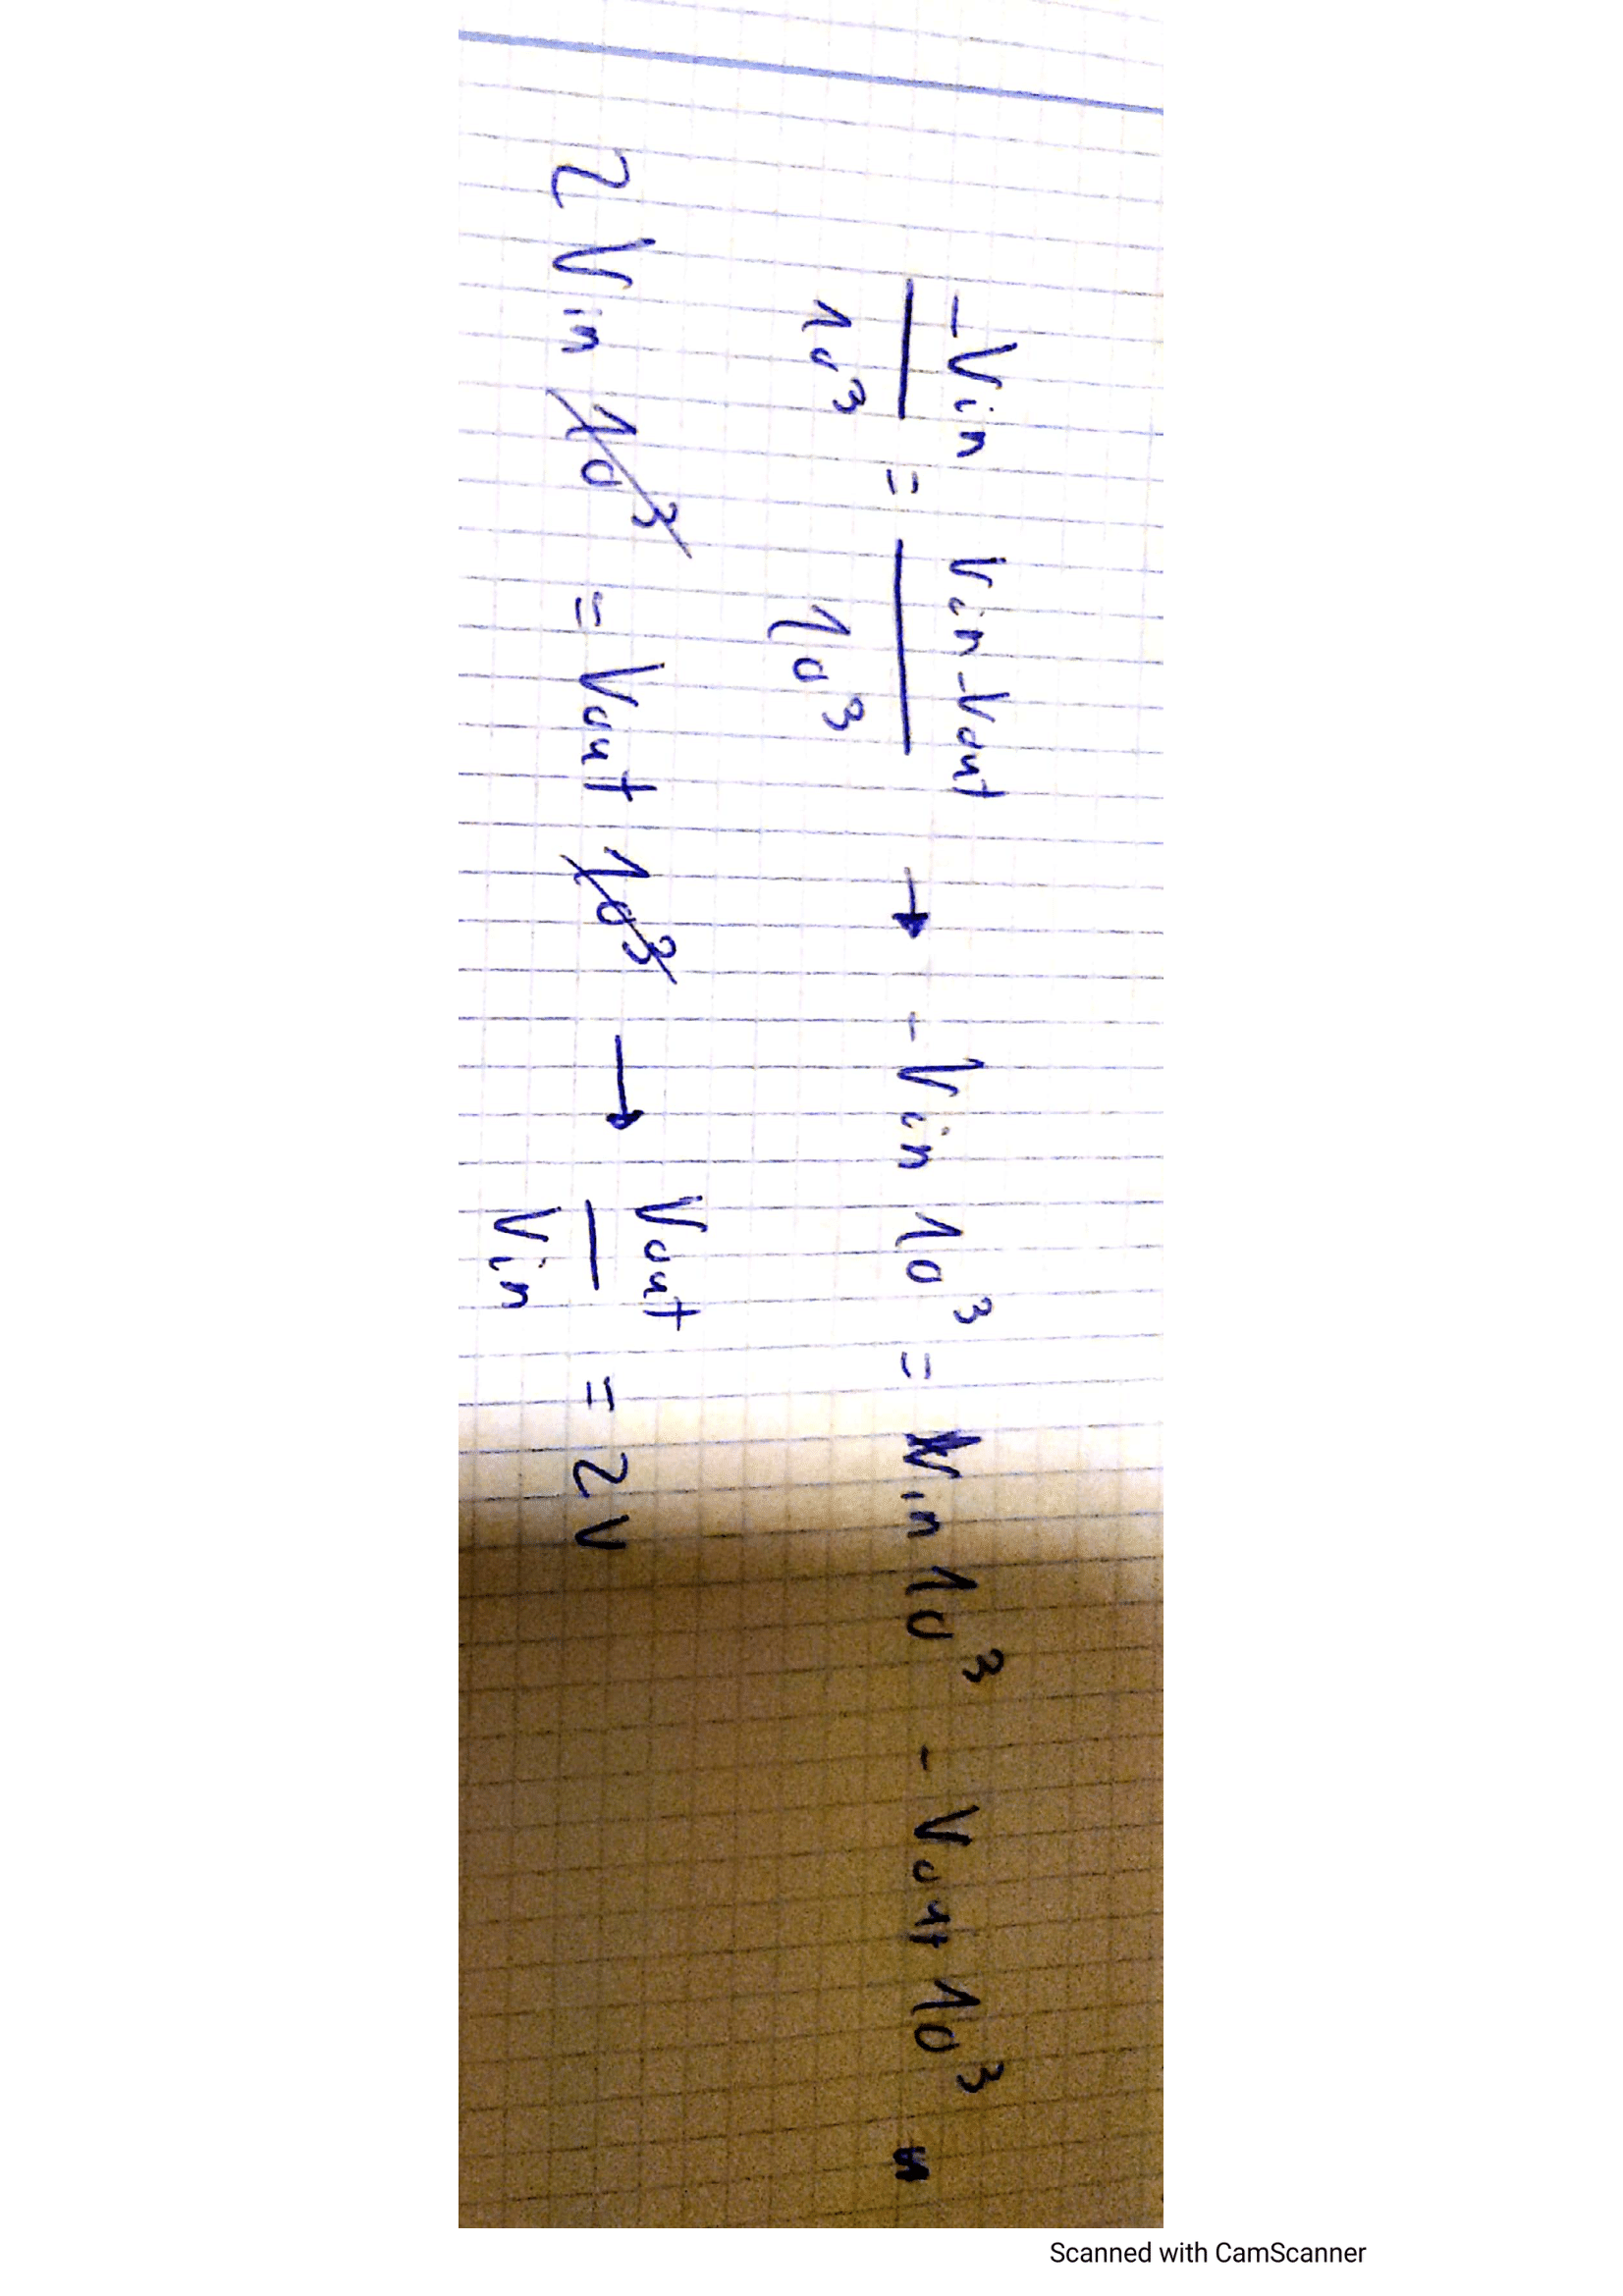 -Vin/10³ = Vin-Vout/10³ → -Vin 10³ = Vin 10³ - Vout 10³
2 Vin 10³ = Vout 10³ → Vout/Vin = 2V
Scanned with CamScanner